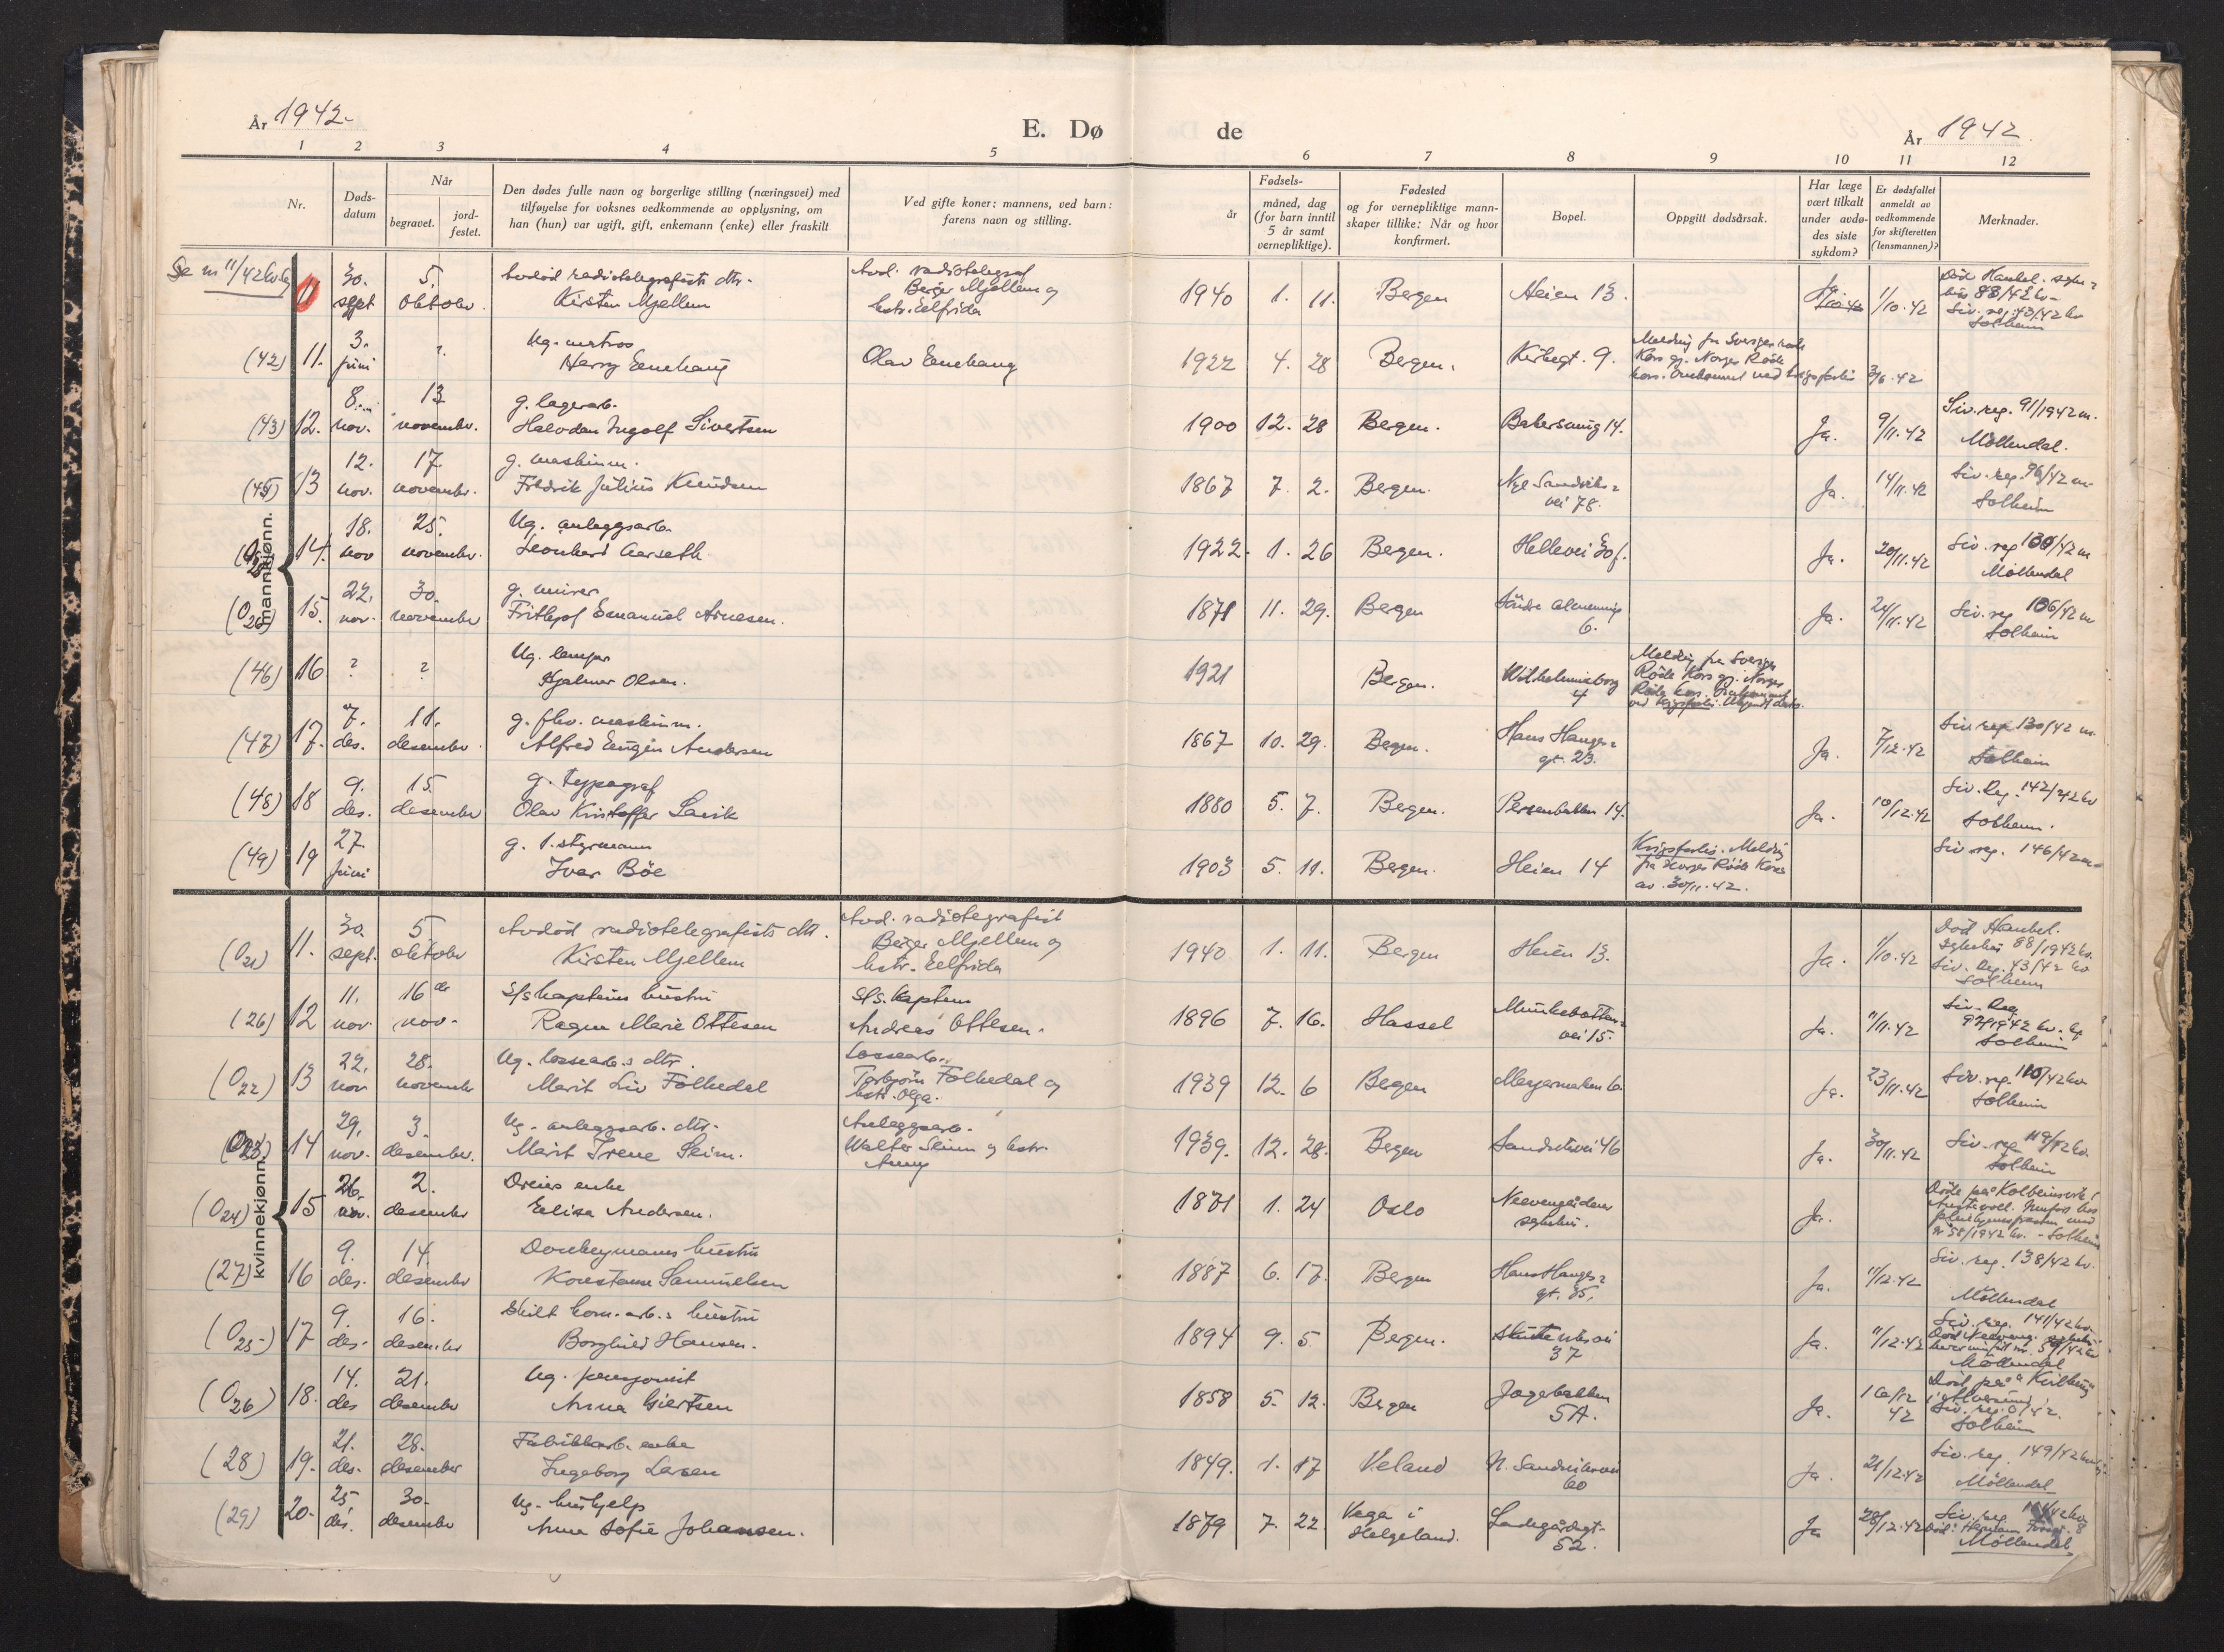 År 1942.
E. Dø
de
År 1942.
1 2 3 4 5 6 7 8 9 10 11 12
Nr.
Døds-
datum
Når
begravet.
jord-
festet.
Den dødes fulle navn og borgerlige stilling (næringsvei) med
tilføyelse for voksnes vedkommende av opplysning, om
han (hun) var ugift, gift, enkemann (enke) eller fraskilt
Ved gifte koner: mannens, ved barn:
farens navn og stilling.
Fødsels-
år
måned, dag
(for barn inntil
5 år samt
vernepliktige).
Fødested
og for vernepliktige mann-
skaper tillike: Når og hvor
konfirmert.
Bopel.
Oppgitt dødsårsak.
Har læge
vært tilkalt
under avdø-
des siste
sykdom?
Er dødsfallet
anmeldt av
vedkommende
for skifteretten
(lensmannen)?
Merknader.
mannkjønn.
Se nr 11/42
30. 5. Avdød radiotelegrafists dtr. Avd. radiotelegraf
11 sept oktober. Kirsten Mjellem Berger Mjellem og
1940 1. 11. Bergen Heien 13. Ja 1/10.42
Solheim
3. ? Ug. matros
(42) 11. juni Harry Eenehaug Olav Eenehaug 1922 4. 28 Bergen. Kirkegt. 9.
Melding fra Sveriges røde
Kors gj. Norges Røde
Kors. Omkommet ved krigsforlis
8. 13 g. lagerarb.
(43) 12. nov. november. Halvdan Ingolf Sivertsen 1900 12. 28 Bergen. 14. Ja. 9/11.42
Siv. reg. 91/1942 m.
Møllendal.
12. 17. g. maskinm.
13 nov. november. Fredrik Julius Knudsen 1867 7. 2. Bergen. Nye Sandviks-
vei 78. Ja. 14/11.42
Siv. reg. 96/42 m.
Solheim
18. 25. Ug. anleggsarb.
14. nov november. Leonhard Aarseth 1922. 1. 26 Bergen. Hellevei 30 f. Ja. 20/11.42
Siv. reg 100/42 m
Møllendal
22. 30. g. murer
(O26) 15. nov. november Frithjof Emanuel Arnesen. 1871 11. 29. Bergen Søndre almenning
6. Ja. 24/11.42
Siv. reg 106/42 m
Solheim
? ? Ug. lemper
(46) 16 Hjalmar Olsen. 1921 Bergen. Wilhelminaborg
4
Melding fra Sveriges
Røde Kors gj. Norges
Røde kors. Omkommet
ved krigsforlis.
7. 11. g. fhv. maskinm.
(47) 17. des. desember. Alfred Eugen Andersen 1867 10. 29. Bergen. Hans Hauges-
gt. 23. Ja. 7/12.42
Siv. reg 130/42 m.
Solheim
9. 15. g. typograf
(48) 18 des. desember Olav Kristoffer Lavik 1880 5. 7. Bergen. Persenbakken 14. Ja. 10/12.42
Siv. Reg. 142/42
Solheim.
27. g. 1. styrmann
(49) 19 juni Ivar Böe 1903 5. 11. Bergen. Heien 14
Krigsforlis. Melding
fra Norges Røde Kors
av. 30/11.42.
Siv. reg. 146/42 m.
kvinnekjønn.
30. 5 Avdød radiotelegrafists dtr. Avd. radiotegrafist
(O21) 11. sept. oktober Kirsten Mjellem Berger Mjellem og
1940 1. 11. Bergen Heien 13. Ja. 1/10.42
Død Haukel.
sykehus 88/1942 kv.
Siv. Reg. 43/42 kv
Solheim
11. 16de S/s kapteins hustru S/s. kaptein
(26) 12 nov. nov. Ragna Marie Ottesen Andreas Ottesen. 1896 7. 16. Hassel Munkebotten-
vei 15. Ja. 11/11.42
Siv. Reg
Solheim
22. 28. Ug. lossearb.s dtr. Lossearb.
(O22) 13 nov november Marit Liv Folkedal Torbjørn Folkedal og
hstr. Olga. 1939 12. 6 Bergen Meyermarken 6. Ja. 23/11.42
Siv. reg. 110/42 kv
Solheim
29. 3. Ug. anleggsarb. dtr. Anleggsarb.
14 nov. desember. Marit Irene Seim. Walter Seim og hstr.
1939. 12. 28. Bergen Sandviksvei 46 Ja. 30/11.42
Siv. reg 119/42 kv.
Solheim
26. 2. Dreiers enke
(O24) 15 nov. desember Elisa Andersen. 1871 1. 24 Oslo Neevengården
sykehus. Ja.
9. 14. Donkeymanns hustru
(27) 16 des. desember Konstanse Samuelsen 1887 6. 17. Bergen Hans Hauges-
gt. 35. Ja. 11/12.42
Siv. reg. 138/42 kv.
Møllendal
9. 16. Skilt kom. arb.s hustru
(O25) 17 des. desember Borghild Hansen. 1894 9. 5. Bergen. Skuteviksvei
37 Ja. 11/12.42
Siv. reg. 141/42 kv.
Møllendal
14. 21. Ug. pensjonist
(O26) 18. des desember Anna Giertsen 1858 5. 12. Bergen Jægebakken
5A. Ja. 16/12
42
Solheim
21. 28. Fabrikkarb. enke
(28) 19. des. desember Ingeborg Larsen 1849. 1. 17 Veland N. Sandviksvei
60 Ja. 21/12.42
Siv. reg. 149/42
Møllendal
25. 30. Ug. hushjelp
(29) 20. des. desember Anna Sofie Johansen. 1879 7. 22. Vega i
Helgeland. Ladegårdsgt.
52. Ja 28/12.42
Møllendal